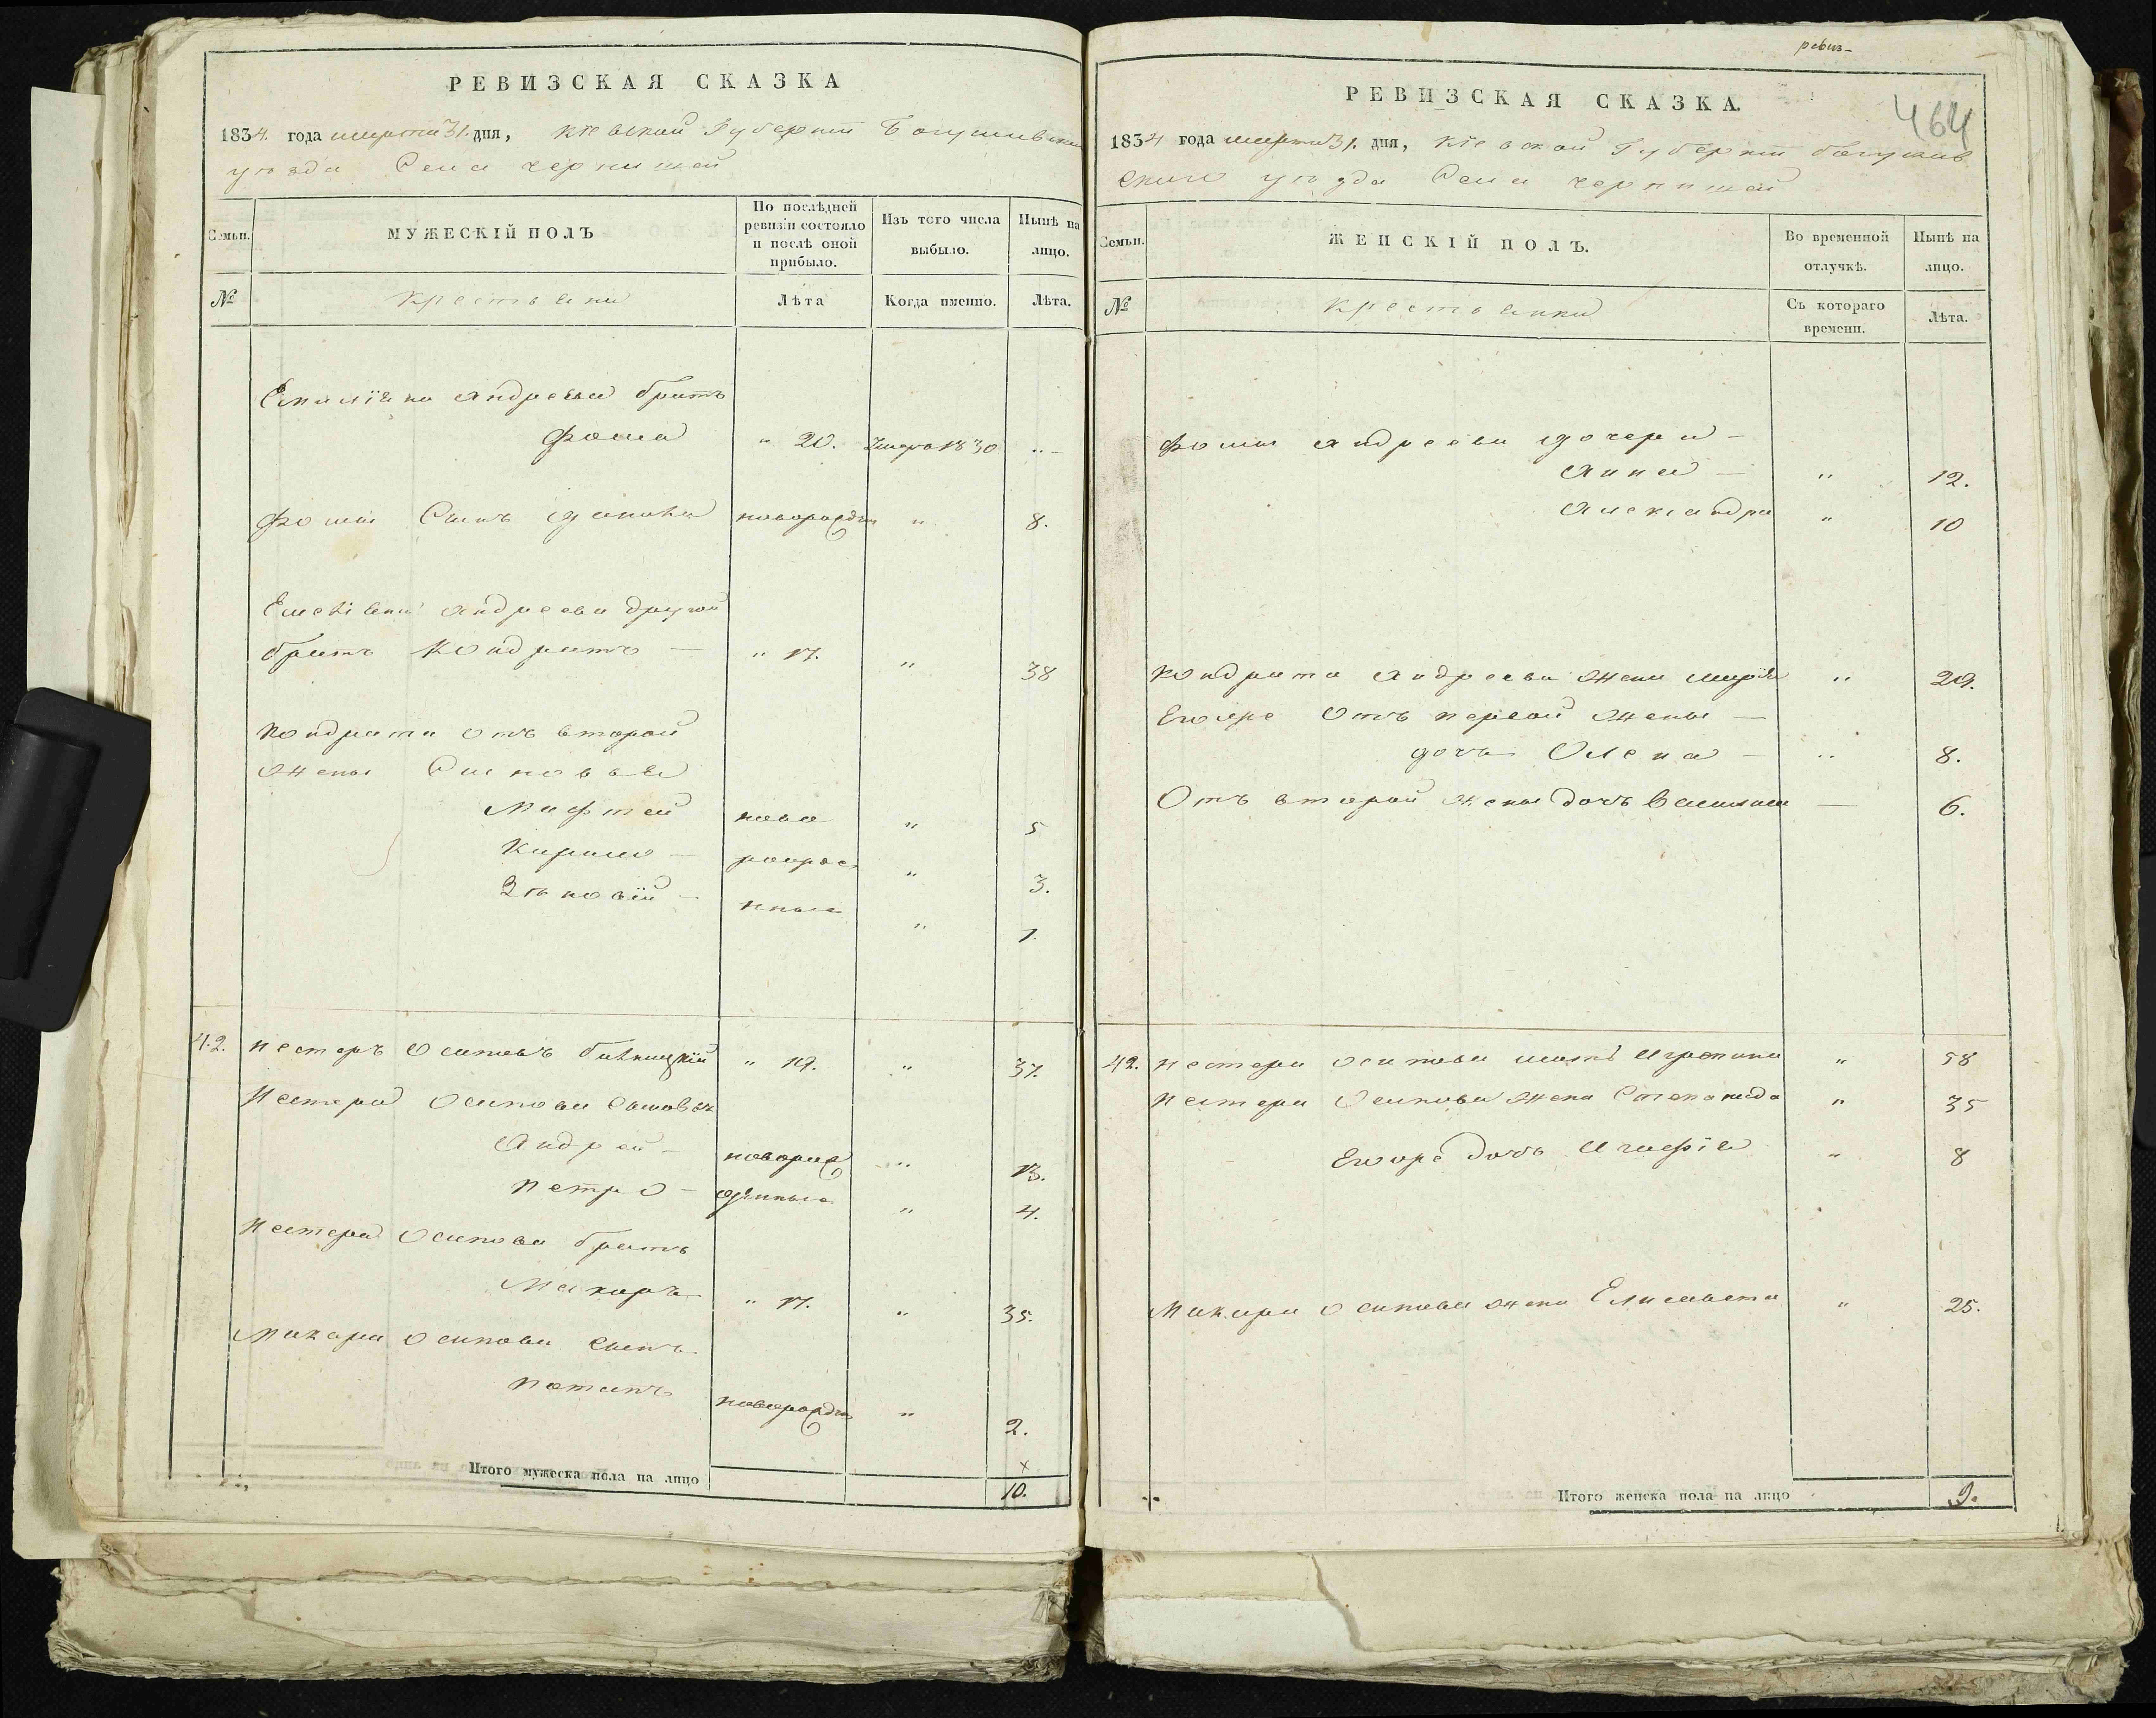 РЕВИЗСКАЯ СКАЗКА
1834. года марта 31. дня, Кіевской Губерніи Богуславскаго
уезда Села
МУЖЕСКІЙ ПОЛЪ
Семьи.
По послѣдней
ревизіи состояло
и послѣ оной
прибыло.
Изъ того числа
выбыло.
Нынѣ на
лицо.
№
Крестьяни
Лѣта
Когда именно.
Лѣта.
Андреева братъ
Фома " 20. Умеръ 1830 " -
Фомы Сынъ новорожден " 8.
Андреева другой
братъ Кондратъ — " 17. " 38
Кондрата отъ второй
жены Сыновья
Мафтей ново " 5
Кирило — рожде " 3.
Зѣновій — нные " 1.
42. Нестеръ Осиповъ " 19. " 37.
Нестера Осипова Сыновья
Андрей — новорож " 13.
Петро — денные " 4.
Нестера Осипова братъ
Макаръ " 17. " 35.
Макара Осипова Сынъ
Потапъ новорожден " 2.
Итого мужеска пола на лицо
х
10.
ревиз-
464
РЕВИЗСКАЯ СКАЗКА.
1834 года марта 31. дня, Кіевской Губерніи Богуслав
скаго уезда Села
Семьи.
ЖЕНСКІЙ ПОЛЪ.
Во временной
отлучкѣ.
Нынѣ на
лицо.
№
Крестьянки
Съ котораго
времени.
Лѣта.
Фомы Андреева дочери —
Анна — " 12.
Александра " 10
Кондрата Андреева жена Марія " 29.
Егоже Отъ первой жены —
дочь Олена — " 8.
Отъ второй жены дочь — 6.
42. Нестера Осипова мать Агропина " 58
Нестера Осипова жена Степанида " 35
Егоже дочь Агафія " 8
Макара Осипова жена Елисавета " 25.
Итого женска пола на лицо 9.